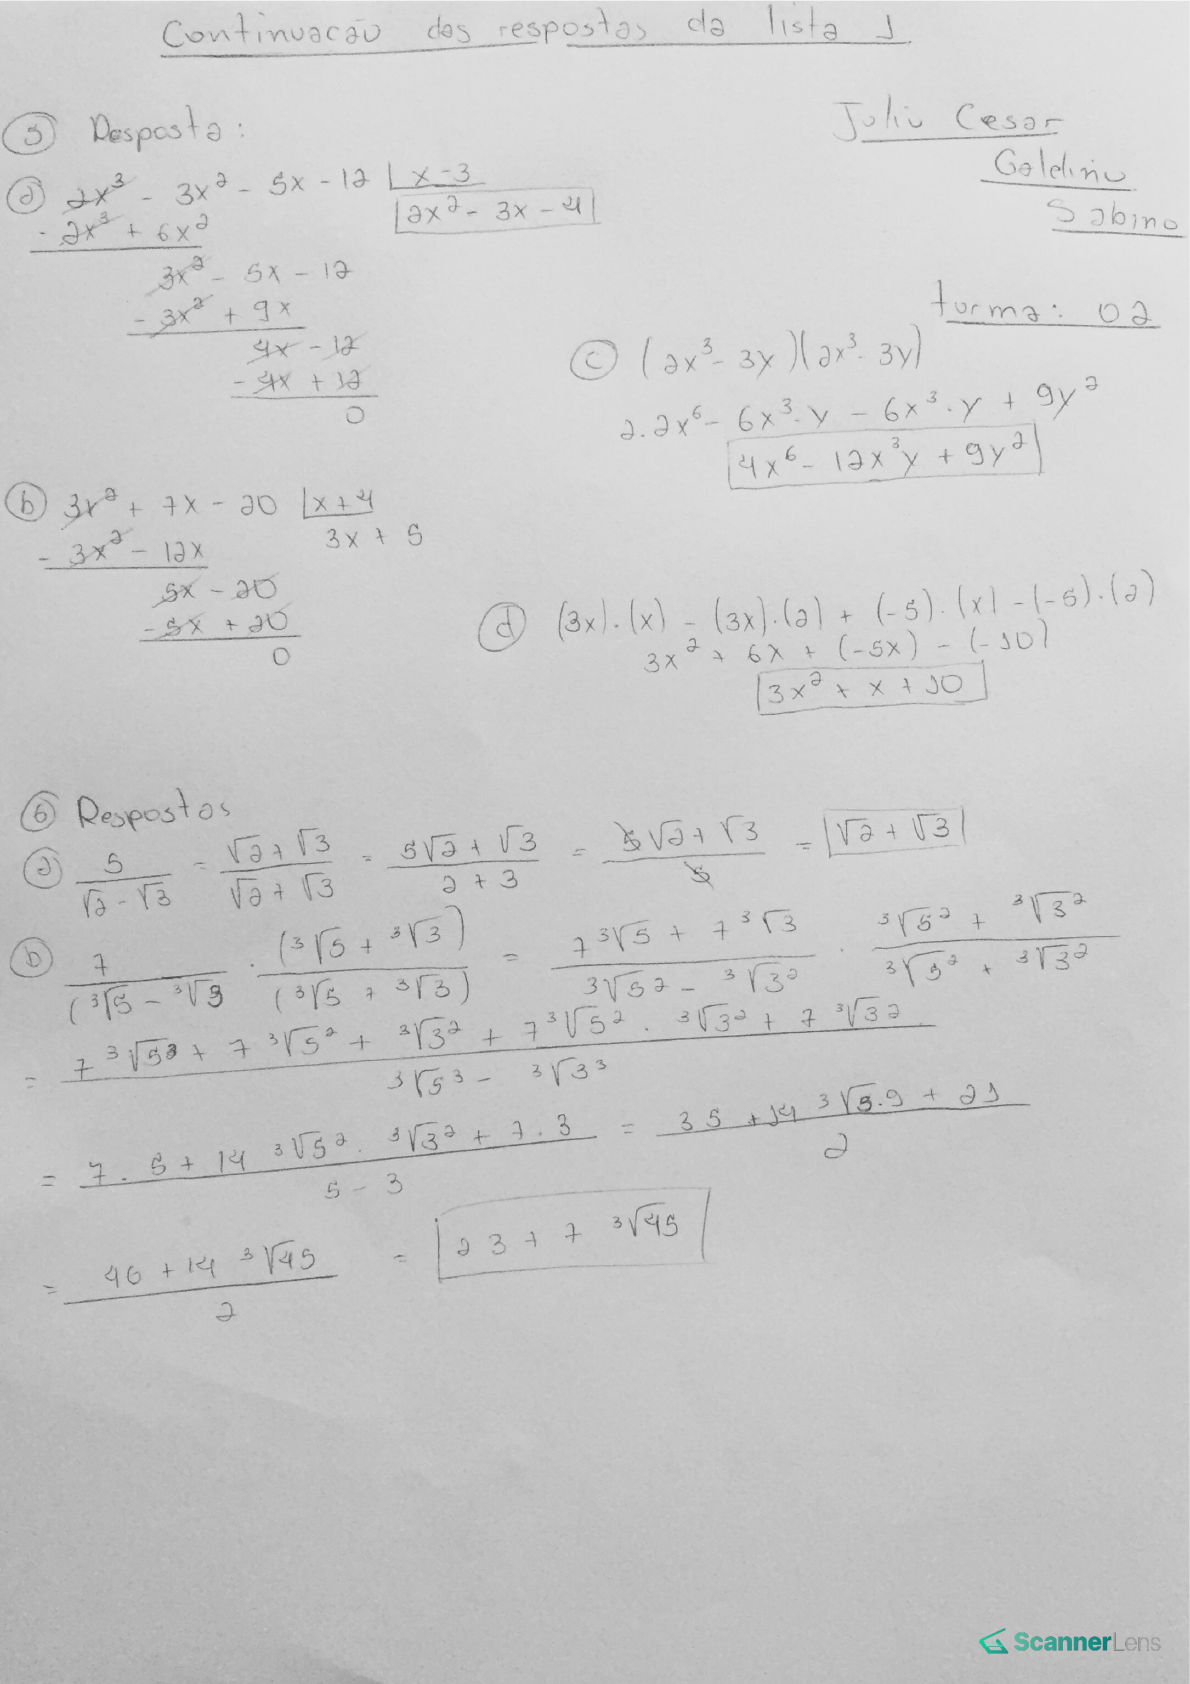 Continuacão das respostas da lista 1
Julio Cesar
Galdino
Sabino
turma: 02
5 Resposta:
a 2x³ - 3x² - 5x - 12 | x - 3
- 2x³ + 6x² 2x² - 3x - 4
3x² - 5x - 12
- 3x² + 9x
4x - 12
- 4x + 12
0
b 3x² + 7x - 20 | x + 4
- 3x² - 12x 3x + 5
5x - 20
- 5x + 20
0
c (2x³ - 3y)(2x³ - 3y)
2.2x⁶ - 6x³.y - 6x³.y + 9y²
4x⁶ - 12x³y + 9y²
d (3x).(x) - (3x).(2) + (-5).(x) - (-5).(2)
3x² + 6x + (-5x) - (-10)
3x² + x + 10
6 Respostas
a 5/(√2 - √3) = (√2 + √3)/(√2 + √3) = (5√2 + √3)/(2 + 3) = (5√2 + √3)/5 = √2 + √3
b 7/(³√5 - ³√3 . (³√5 + ³√3)/(³√5 + ³√3) = (7³√5 + 7³√3)/(³√5² - ³√3²) . (³√5² + ³√3²)/(³√5² + ³√3²)
= (7³√5³ + 7³√5² + ³√3² + 7³√5² . ³√3² + 7³√3²)/(³√5³ - ³√3³)
= (7.5 + 14³√5² . ³√3² + 7.3)/(5 - 3) = (35 + 14³√5.9 + 21)/2
= (46 + 14³√45)/2 = 23 + 7³√45
ScannerLens